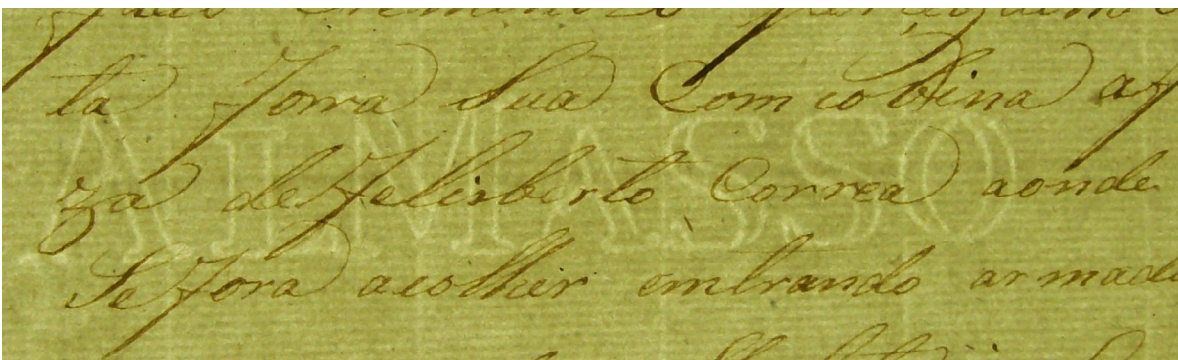 ta Forra Sua Comcobina af
za de Felisberto Correa aonde
Se Fora acolher emtrando armado
ALMASSO